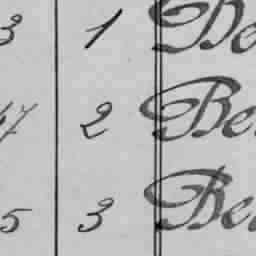 3 1 De
47 2 Be
5 3 Be